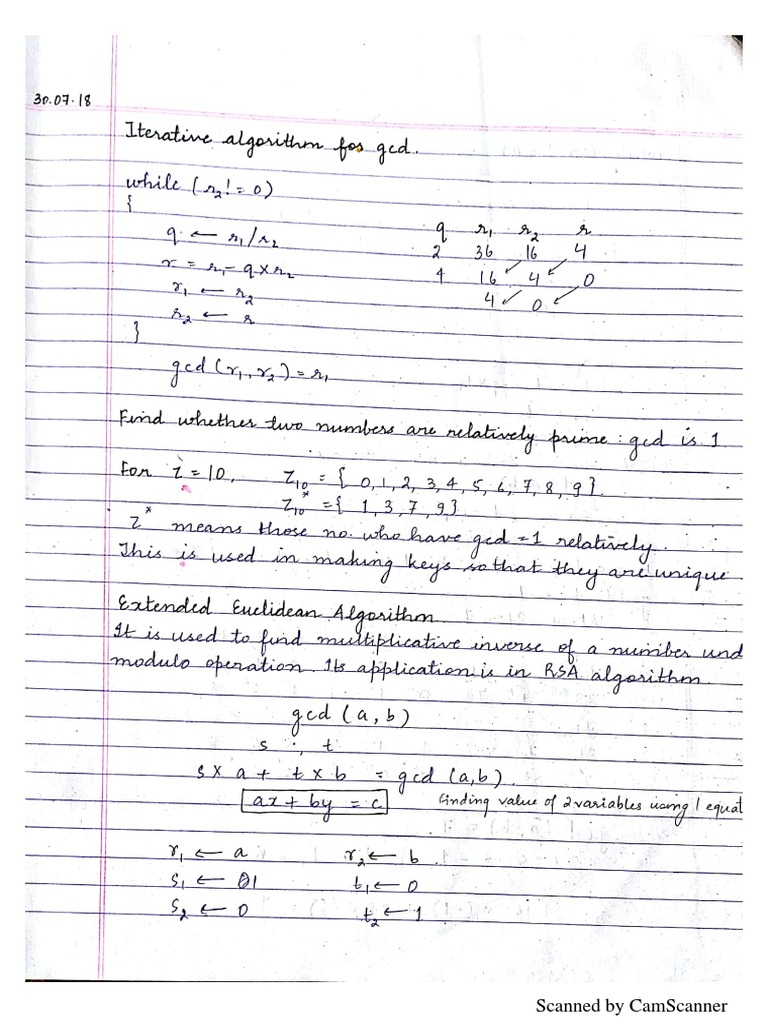 30.07.18
Iterative algorithm for gcd.
while (r₂! = 0)
{
q ← r₁/r₂
r = r₁ - q × r₂
r₁ ← r₂
r₂ ← r
}
q r₁ r₂ r
2 36 16 4
4 16 4 0
4 0
gcd (r₁, r₂) = r₁
Find whether two numbers are relatively prime : gcd is 1
For Z = 10, Z₁₀ = { 0, 1, 2, 3, 4, 5, 6, 7, 8, 9 }.
Z₁₀* = { 1, 3, 7, 9 }.
Z* means those no. who have gcd = 1 relatively.
This is used in making keys so that they are unique
Extended Euclidean Algorithm
It is used to find multiplicative inverse of a number und
modulo operation. Its application is in RSA algorithm.
gcd (a, b)
s , t
s × a + t × b = gcd (a, b).
ax + by = c finding value of 2 variables using 1 equat
r₁ ← a r₂ ← b
s₁ ← 1 t₁ ← 0
s₂ ← 0 t₂ ← 1
Scanned by CamScanner